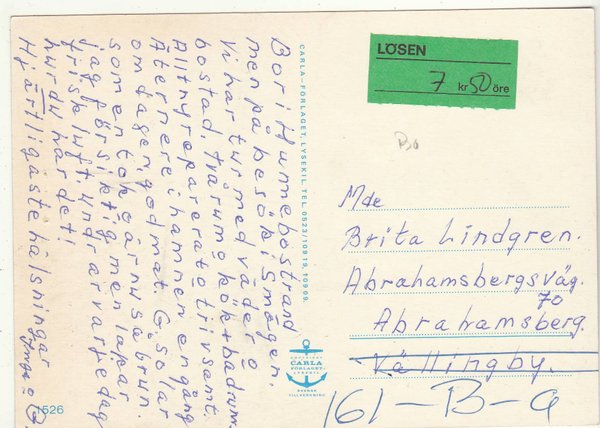 Bor i Hunnebostrand
men på besök i Smögen.
Vi har tur med väder o
bostad, tvårum o kök + badrum.
Allt nyreparerat o trivsamt.
Äter nere i hamnen en gång
om dagen, god mat. G solar
som en tok, är nu så brun.
jag försiktig men lapar
frisk luft. undrar varje dag
hur du har det!
Hjärtligaste hälsningar
Inga o G.
1526
CARLA-FÖRLAGET, LYSEKIL TEL 0523/10919, 10909.
CARLA
FÖRLAGET
LYSEKIL
SVENSK
TILLVERKNING
LÖSEN
7 kr 50 öre
Mde
Brita Lindgren.
Abrahamsbergsväg.
70
Abrahamsberg.
Vällingby.
161-B-a